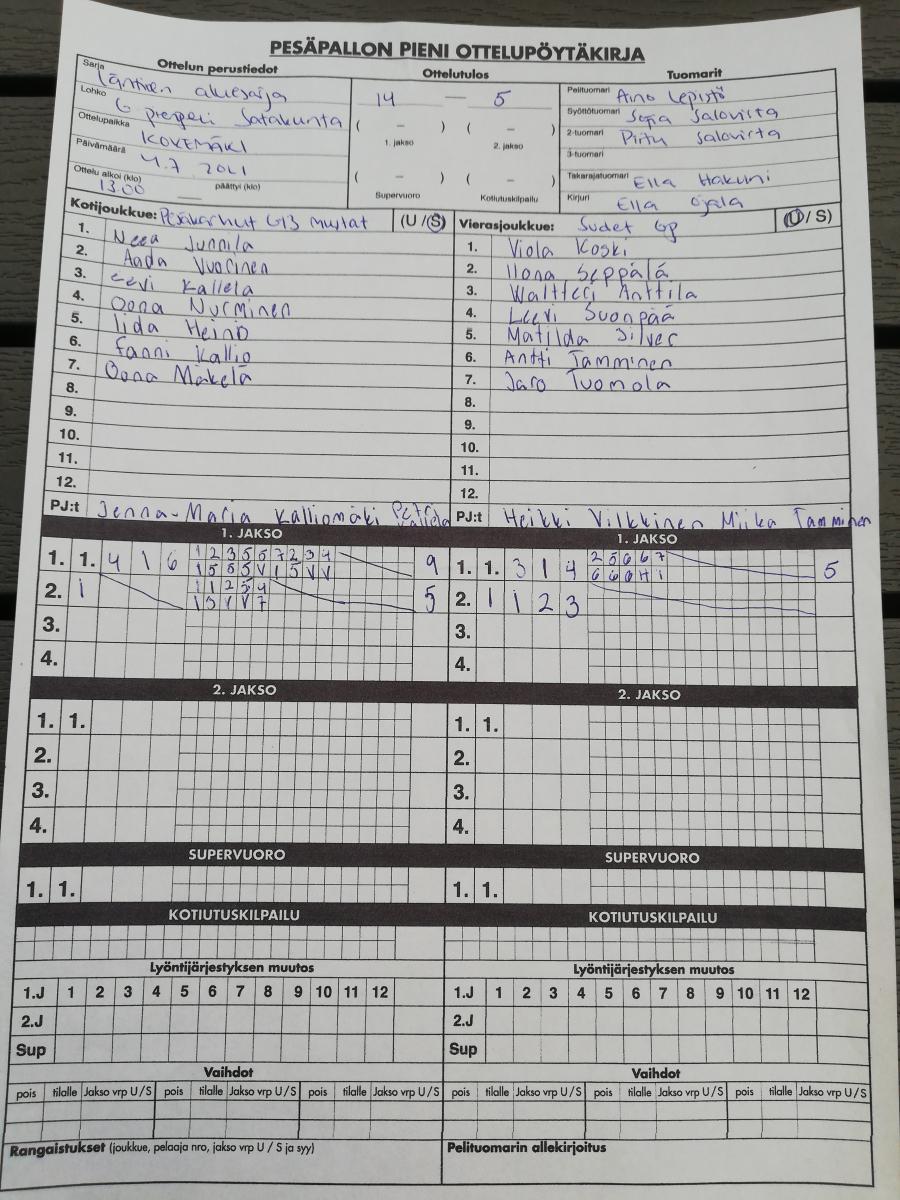 PESÄPALLON PIENI OTTELUPÖYTÄKIRJA
Ottelun perustiedot
Sarja Läntinen aluesarja
Lohko G pienpeli Satakunta
Ottelupaikka KOKEMÄKI
Päivämäärä 4.7 2021
Ottelu alkoi (klo) 13.00 päättyi (klo) —
Ottelutulos
14 — 5
( – ) ( – )
1. jakso 2. jakso
( – ) ( – )
Supervuoro Kotiutuskilpailu
Tuomarit
Pelituomari Aino Lepistö
Syöttötuomari Sofia Salovirta
2-tuomari Pirtu Salovirta
3-tuomari
Takarajatuomari Ella Hakuni
Kirjuri Ella Ojala
Kotijoukkue: Pesäkarhut G13 mustat (U / S)
1. Neea Junnila
2. Aada Vuorinen
3. eevi Kallela
4. Oona Nurminen
5. Iida Heino
6. Fanni Kallio
7. Oona Mäkelä
8.
9.
10.
11.
12.
PJ:t Jenna-Maria Kalliomäki Petri Kallela
Vierasjoukkue: Sudet Gp (U / S)
1. Viola Koski
2. Ilona Seppälä
3. Waltteri Anttila
4. Leevi Suonpää
5. Matilda Silver
6. Antti Tamminen
7. Jaro Tuomola
8.
9.
10.
11.
12.
PJ:t Heikki Vilkkinen Miika Tamminen
1. JAKSO
1. 1. 4 1 6 1 2 3 5 6 7 2 3 4 9
1 5 5 5 V 1 5 V V
2. 1 1 1 2 3 4 5
1 5 V V 7
3.
4.
1. JAKSO
1. 1. 3 1 4 2 5 6 6 7 5
6 6 6 H 1
2. 1 1 2 3
3.
4.
2. JAKSO
1. 1.
2.
3.
4.
2. JAKSO
1. 1.
2.
3.
4.
SUPERVUORO
1. 1.
SUPERVUORO
1. 1.
KOTIUTUSKILPAILU
KOTIUTUSKILPAILU
Lyöntijärjestyksen muutos
1.J 1 2 3 4 5 6 7 8 9 10 11 12
2.J
Sup
Lyöntijärjestyksen muutos
1.J 1 2 3 4 5 6 7 8 9 10 11 12
2.J
Sup
Vaihdot
pois tilalle Jakso vrp U/S pois tilalle Jakso vrp U/S pois tilalle Jakso vrp U/S
Vaihdot
pois tilalle Jakso vrp U/S pois tilalle Jakso vrp U/S pois tilalle Jakso vrp U/S
Rangaistukset (joukkue, pelaaja nro, jakso vrp U / S ja syy)
Pelituomarin allekirjoitus